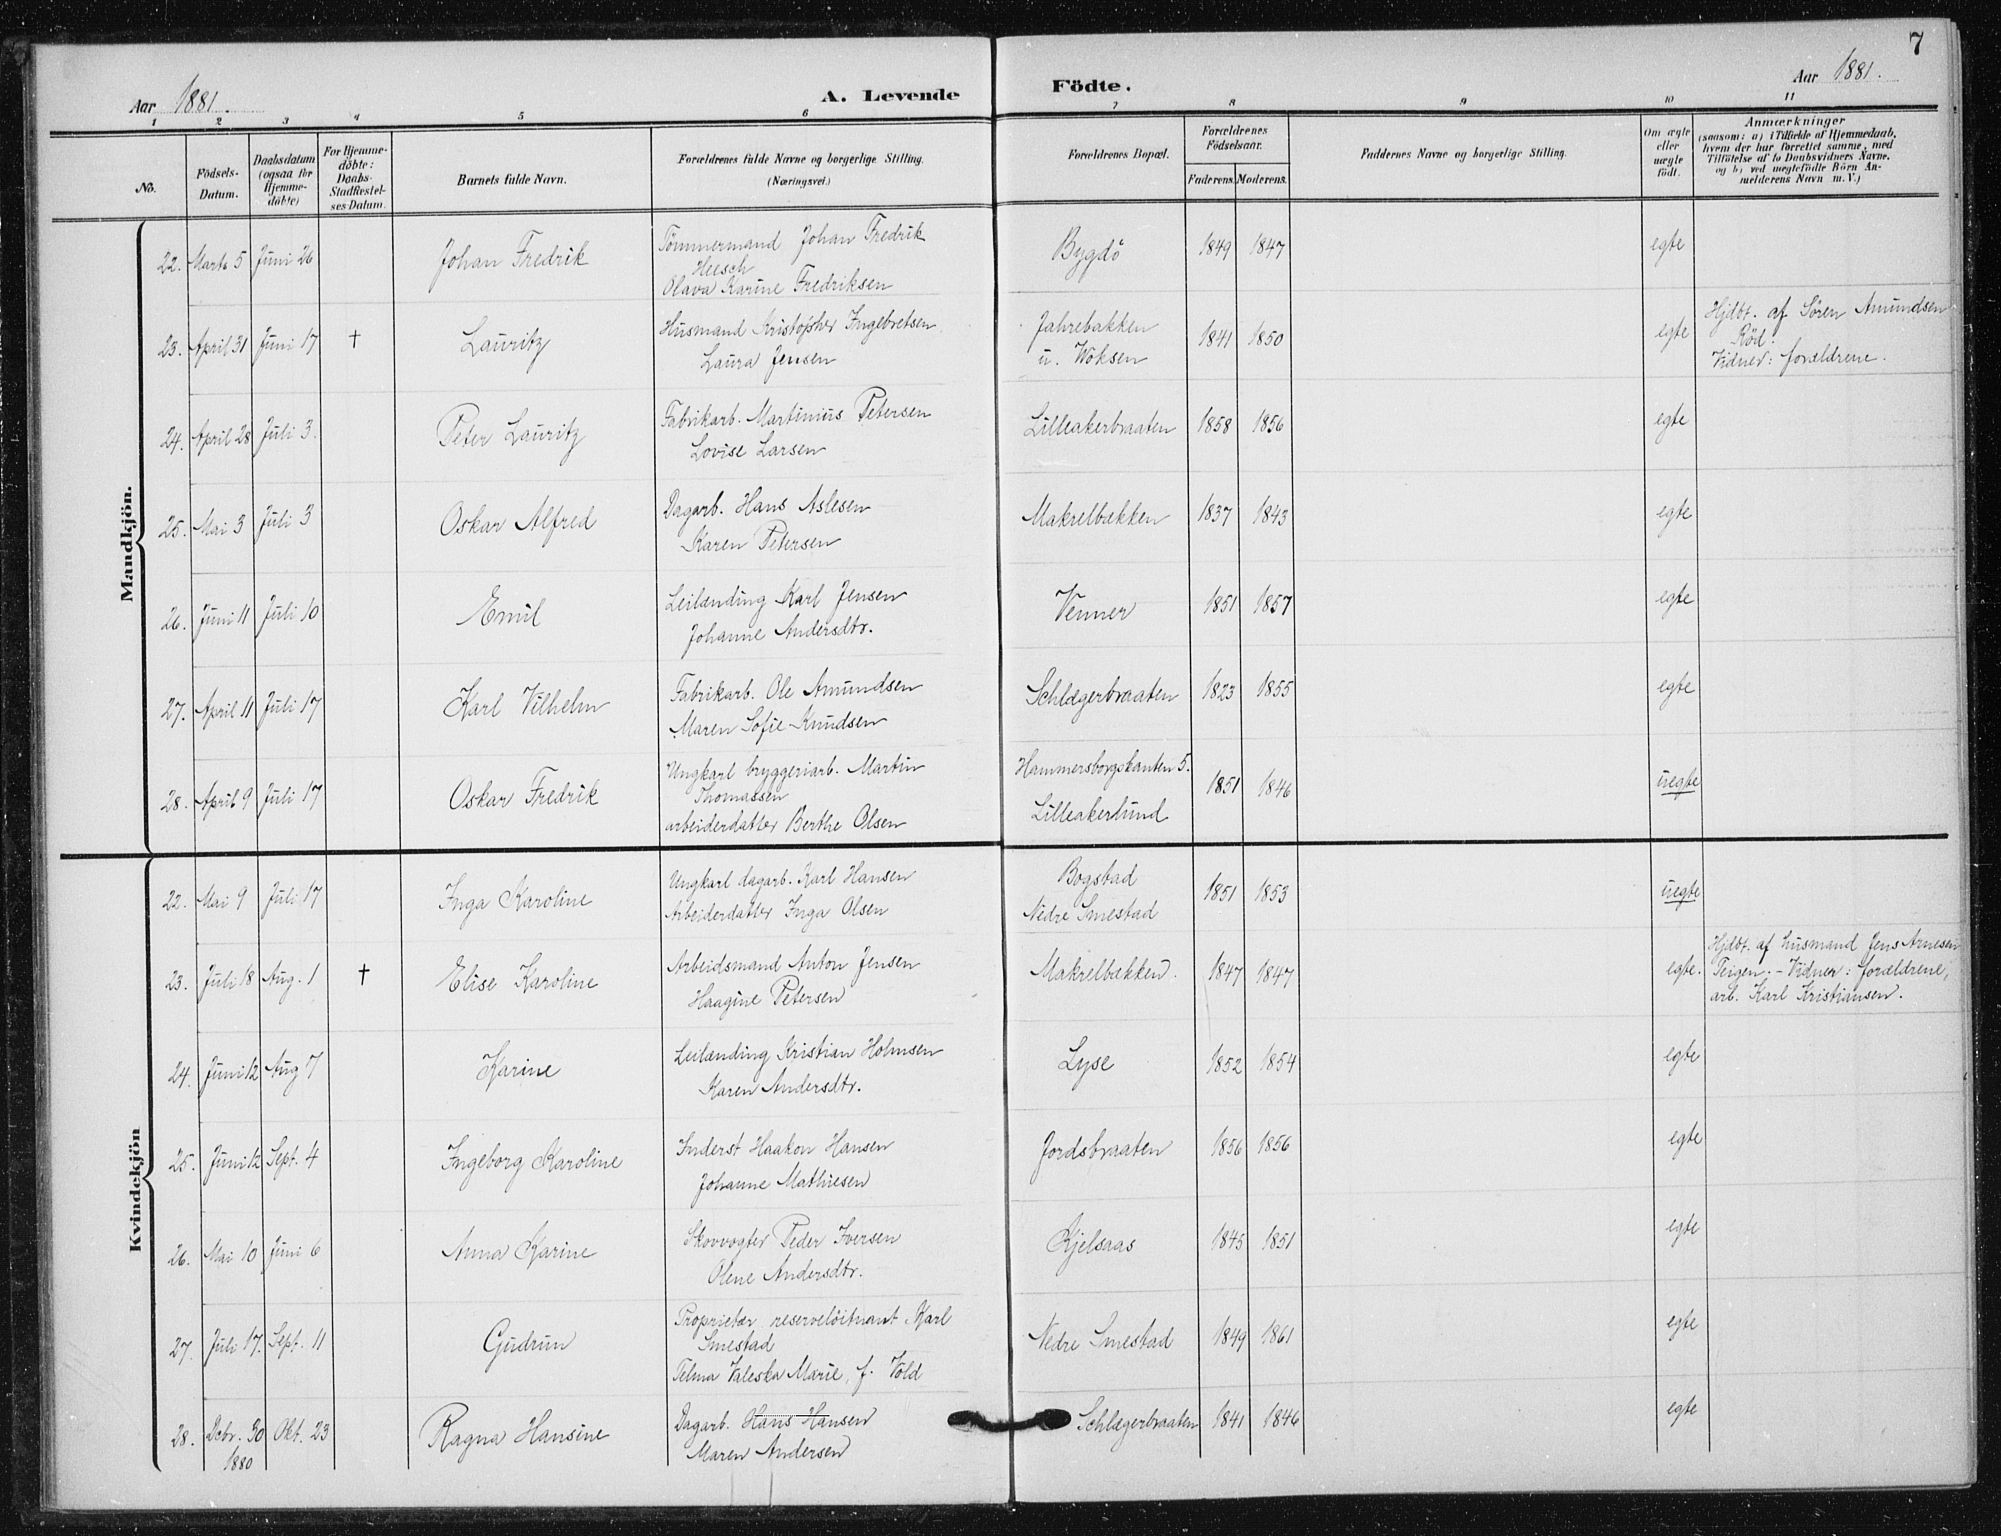 7
Aar 1881.
A. Levende
Födte.
Aar 1881.
1 2 3 4 5 6 7 8 9 10 11
No.
Födsels-
Datum.
Daabsdatum
(ogsaa for
Hjemme-
döbte)
For Hjemme-
döbte:
Daabs-
Stadfæstel-
ses Datum.
Barnets fulde Navn.
Forældrenes fulde Navne og borgerlige Stilling.
(Næringsvei.)
Forældrenes Bopæl.
Forældrenes
Födselsaar.
Faderens. Moderens.
Faddernes Navne og borgerlige Stilling.
Om ægte
eller
uægte
födt.
Anmærkninger
(saasom: a) i Tilfælde af Hjemmedaab,
hvem der har forrettet samme, med
Tilföielse af to Daabsvidners Navne,
og b) ved uægtefödte Börn An-
melderens Navn m. V.)
Mandkjön.
22. Marts 5 Juni 26 Johan Fredrik Tömmermand Johan Fredrik Bygdö 1849 1847 egte
Heesch
Olava Karine Fredriksen
23. April 31 Juni 17 † Lauritz Husmand Kristopher Ingebretsen Jahrebakken 1841 1850 egte Hjdbt. af Sören Amundsen
Laura Jensen u. Woksen Röd.
Vidner: forældrene.
24. April 28 Juli 3. Peter Lauritz Fabrikarb. Martinius Petersen Lilleakerbraaten 1858 1856 egte
Lovise Larsen
25. Mai 3 Juli 3 Oskar Alfred Dagarb. Hans Aslesen Makrelbækken 1837 1843 egte
Karen Petersen
26. Juni 11 Juli 10 Emil Leilænding Karl Jensen Venner 1851 1857 egte
Johanne Andersdtr.
27. April 11 Juli 17 Karl Vilhelm Fabrikarb. Ole Amundsen Schlægerbraaten 1823 1855 egte
Maren Sofie Knudsen
28. April 9 Juli 17 Oskar Fredrik Ungkarl bryggeriarb. Martin Hammersborgskanten 5. 1851 1846 uegte
Thomassen
arbeiderdatter Berthe Olsen Lilleakerlund
Kvindekjön
22. Mai 9 Juli 17 Inga Karoline Ungkarl dagarb. Karl Hansen Bogstad 1851 1853 uegte
Arbeiderdatter Inga Olsen Nedre Smestad
23. Juli 18 Aug. 1 † Elise Karoline Arbeidsmand Anton Jensen Makrelbækken. 1847 1847 egte. Hjdbt. af husmand Jens Arnesen
Haagine Petersen Teigen. - Vidner: forældrene,
arb. Karl Kristiansen.
24. Juni 12 Aug 7 Karine Leilænding Kristian Holmsen Lyse 1852 1854 egte
Karen Andersdtr.
25. Juni 12 Sept. 4 Ingeborg Karoline Inderst Haakon Hansen Jordsbraaten 1856 1856 egte
Johanne Mathiesen
26. Mai 10 Juni 6 Anna Karine Skovvogter Peder Iversen Kjelsaas 1845 1851 egte
Olene Andersdtr.
27. Juli 17. Sept. 11 Gudrun Proprietær reservelöitnant Karl Nedre Smestad 1849 1861 egte
Smestad
Telma Valeska Marie, f. Vold
28. Dcbr. 30 Okt. 23 Ragna Hansine Dagarb. Hans Hansen Schlægerbraaten 1841 1846 egte
1880 Maren Andersen